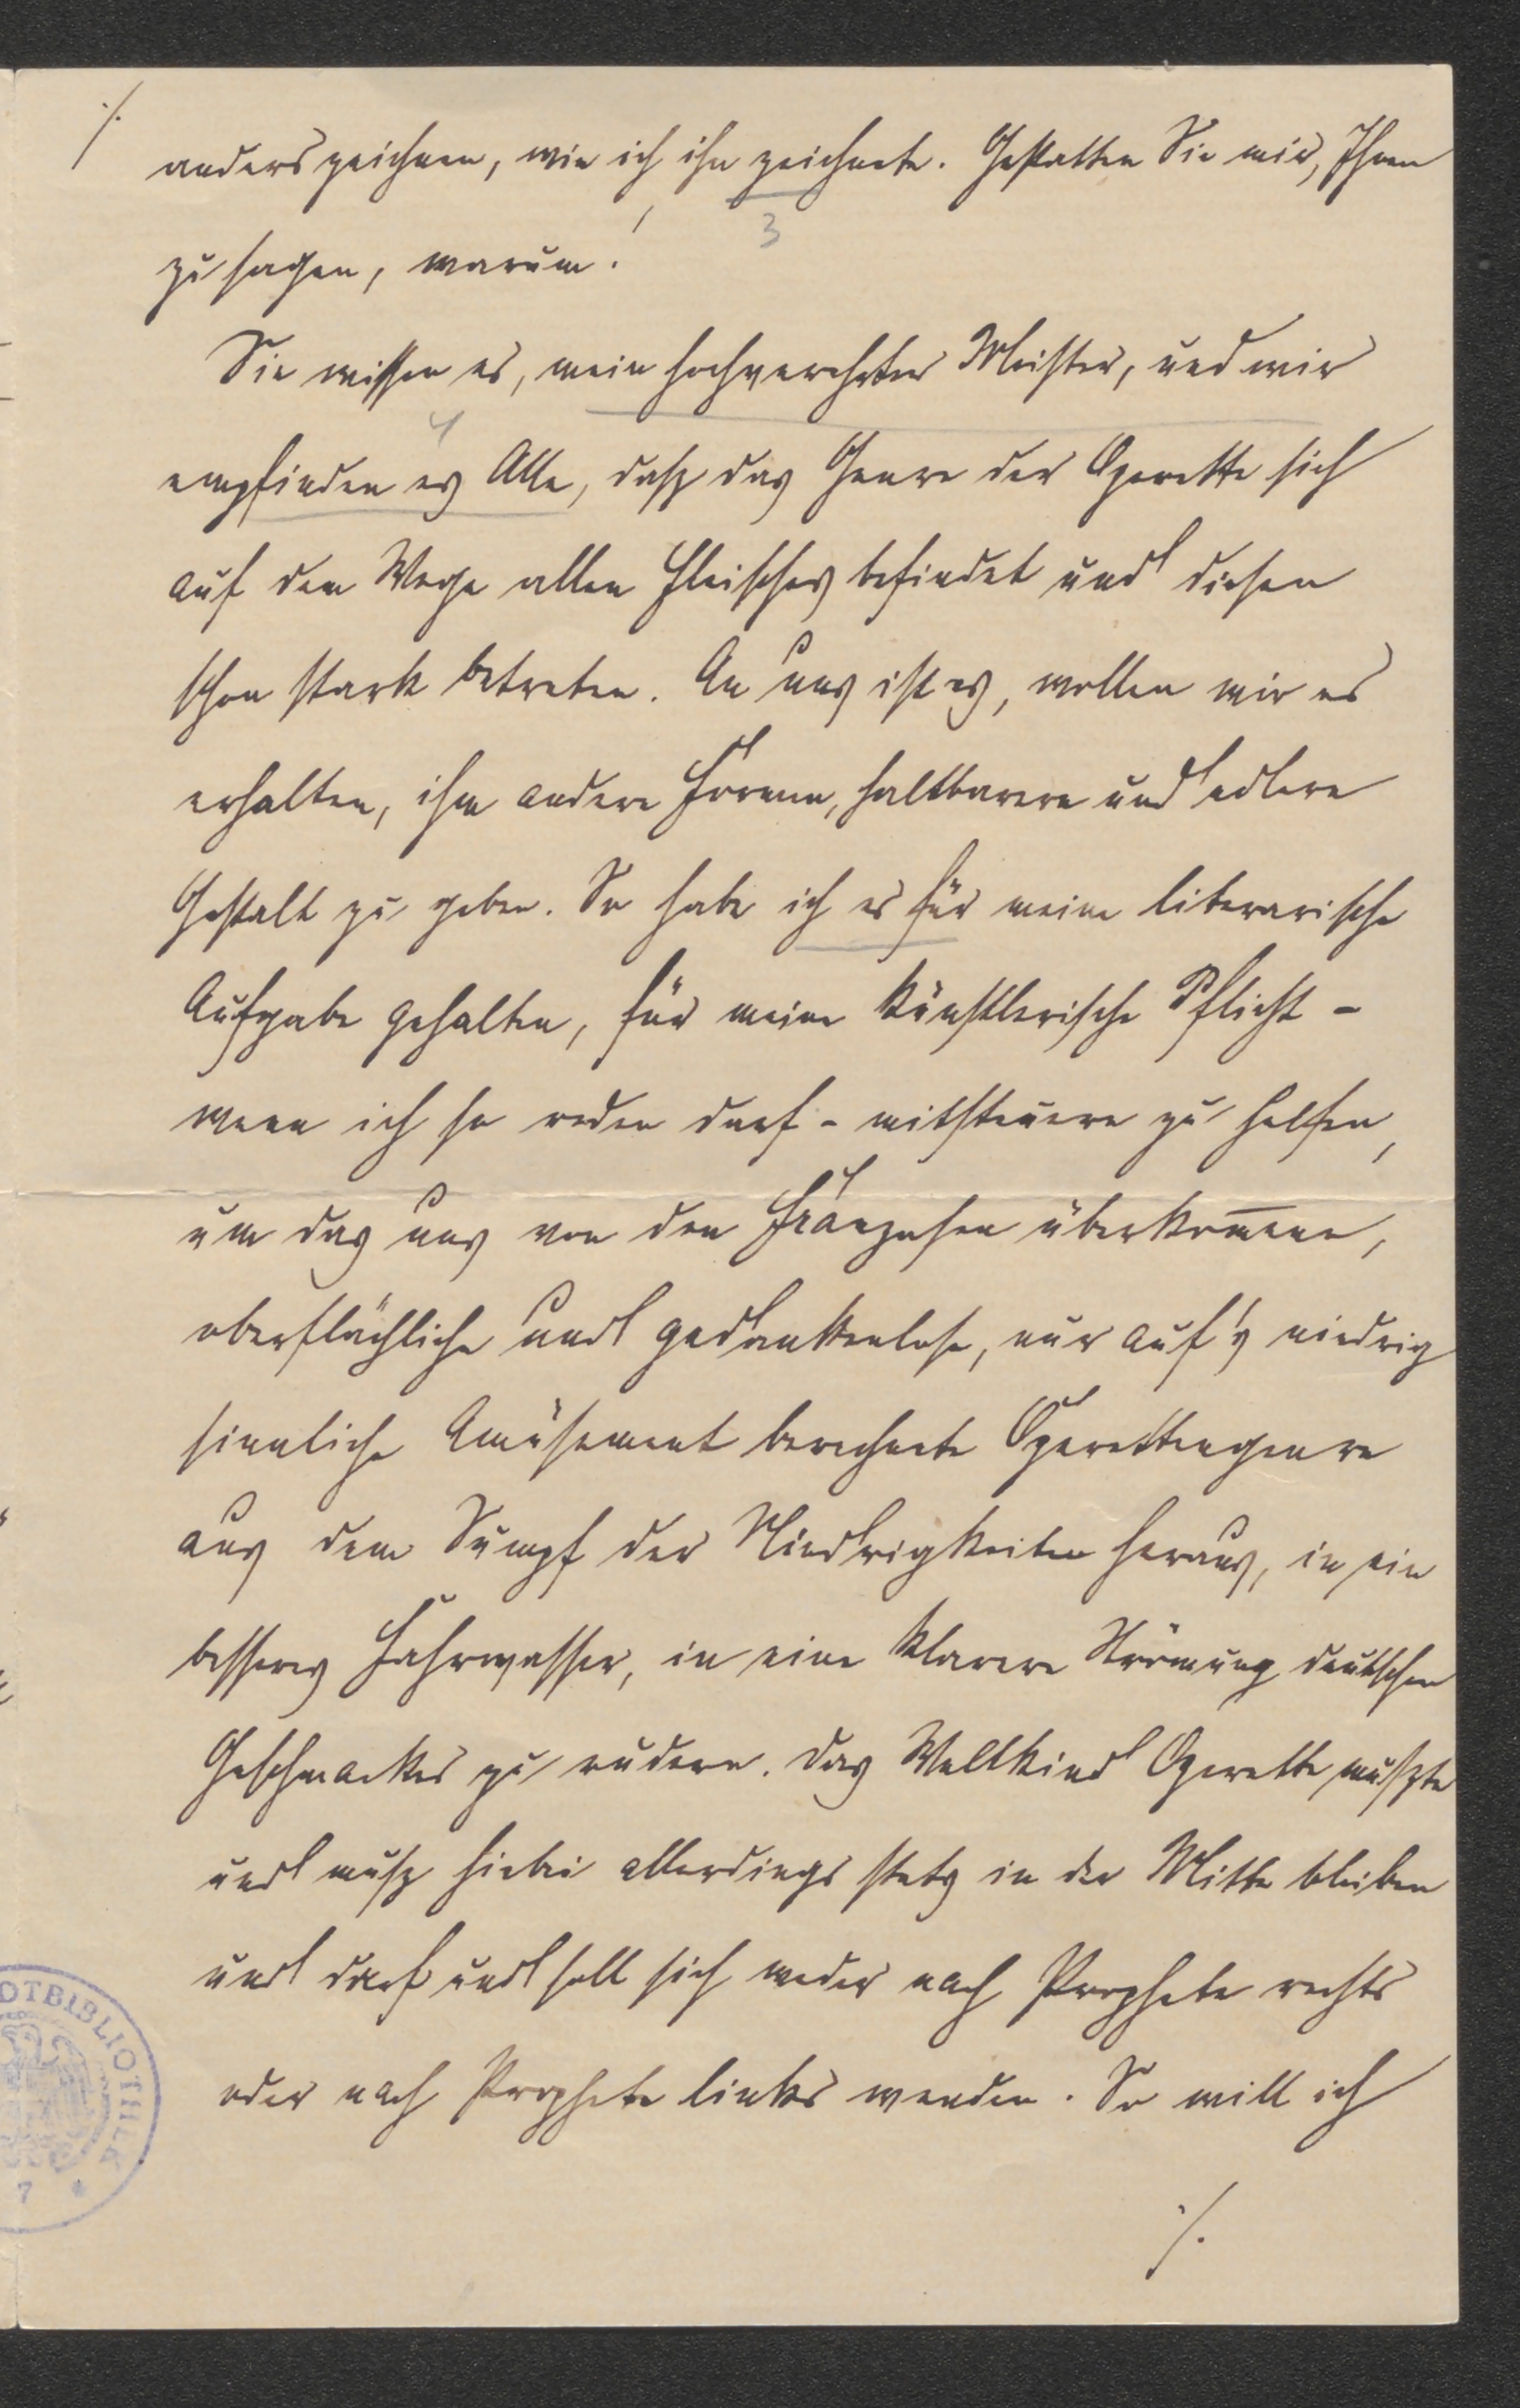 ./.
anders zeichnen, wie ich ihn zeichnete. Gestatten Sie mir, Ihnen
3
zu sagen, warum!
Sie wissen es, mein hochverehrter Meister, und wir
4
empfinden es Alle, dasz das Genre der Operette sich
auf dem Wege allen Fleisches befindet und diesen
schon stark betreten. An uns ist es, wollen wir es
erhalten, ihm andere Formen, haltbarere und edlere
Gestalt zu geben. So habe ich es für meine literarische
Aufgabe gehalten, für meine künstlerische Pflicht -
wenn ich so reden darf - mitsteuern zu helfen,
um das uns von den Franzosen überkom̅ene,
oberflächliche und gedankenlose, nur auf's niedrig
sinnliche Amüsement berechnete Operettengenre
aus dem Sumpf der Niedrigkeiten heraus, in ein
besseres Fahrwasser, in eine klarere Strömung deutschen
Geschmackes zu rudern. Das Weltkind Operette muszte
und musz hiebei allerdings stets in der Mitte bleiben
und darf und soll sich weder nach Prophete rechts
oder nach Prophete links wenden. So will ich
./.
OTBIBLIOTHEK
7 *